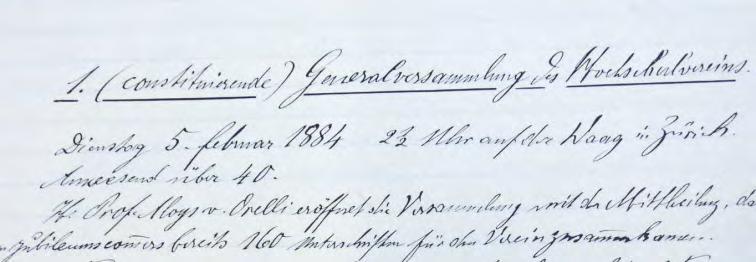 1. (constituirende) Generalversammlung des Hochschulvereins.
Dienstag 5. Februar 1884 2½ Uhr auf der Waag in Zürich.
Anwesend über 40.
Hr. Prof. Aloys v. Orelli eröffnet die Versammlung mit der Mittheilung, da
Jubileumscomers bereits 160 Unterschriften für den Verein zusammenkamen.